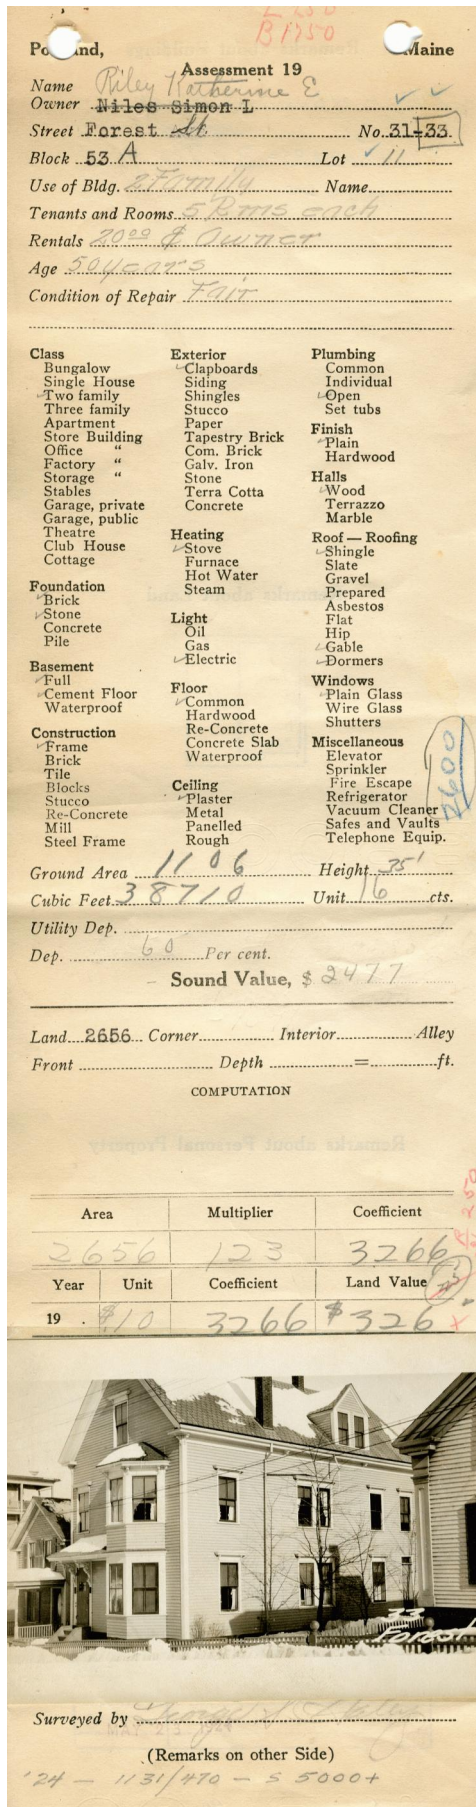 L 250
B 1750
Portland, Maine
Assessment 19
Name Riley Katherine E
Owner Niles Simon L
Street Forest St. No. 31-33
Block 53 A Lot 11
Use of Bldg. 2 Family Name
Tenants and Rooms 5 Rms each
Rentals 20.00 & Owner
Age 50 years
Condition of Repair Fair
Class
Bungalow
Single House
✓Two family
Three family
Apartment
Store Building
Office "
Factory "
Storage "
Stables
Garage, private
Garage, public
Theatre
Club House
Cottage
Foundation
✓Brick
✓Stone
Concrete
Pile
Basement
✓Full
✓Cement Floor
Waterproof
Construction
✓Frame
Brick
Tile
Blocks
Stucco
Re-Concrete
Mill
Steel Frame
Exterior
✓Clapboards
Siding
Shingles
Stucco
Paper
Tapestry Brick
Com. Brick
Galv. Iron
Stone
Terra Cotta
Concrete
Heating
✓Stove
Furnace
Hot Water
Steam
Light
Oil
Gas
✓Electric
Floor
✓Common
Hardwood
Re-Concrete
Concrete Slab
Waterproof
Ceiling
✓Plaster
Metal
Panelled
Rough
Plumbing
Common
Individual
✓Open
Set tubs
Finish
✓Plain
Hardwood
Halls
✓Wood
Terrazzo
Marble
Roof — Roofing
✓Shingle
Slate
Gravel
Prepared
Asbestos
Flat
Hip
✓Gable
✓Dormers
Windows
✓Plain Glass
Wire Glass
Shutters
Miscellaneous
Elevator
Sprinkler
Fire Escape
Refrigerator
Vacuum Cleaner
Safes and Vaults
Telephone Equip.
2600
Ground Area 1106 Height 35'
Cubic Feet 38710 Unit 16 cts.
Utility Dep.
Dep. 60 Per cent.
Sound Value, $ 2477
Land 2656 Corner Interior Alley
Front Depth = ft.
COMPUTATION
Area Multiplier Coefficient
2656 123 3266
Year Unit Coefficient Land Value
19 . $.10 3266 $326
33
Forest
Surveyed by
(Remarks on other Side)
'24 - 1131/470 - S 5000+